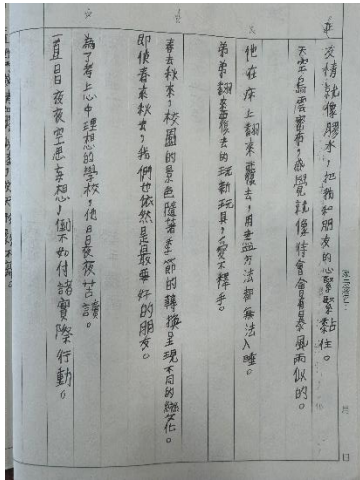 友情就像膠水，把我和朋友的心緊緊黏住。
天空烏雲密布，感覺就像待會會有暴風雨似的。
他在床上翻來覆去，用盡方法都無法入睡。
弟弟翻來覆去的玩新玩具，愛不釋手。
春去秋來，校園的景色隨著季節的轉換呈現不同的變化。
即使春來秋去，我們也依然是最要好的朋友。
為了考上心中理想的學校，他日日夜夜苦讀。
一直日日夜夜空思妄想，倒不如付諸實際行動。
13